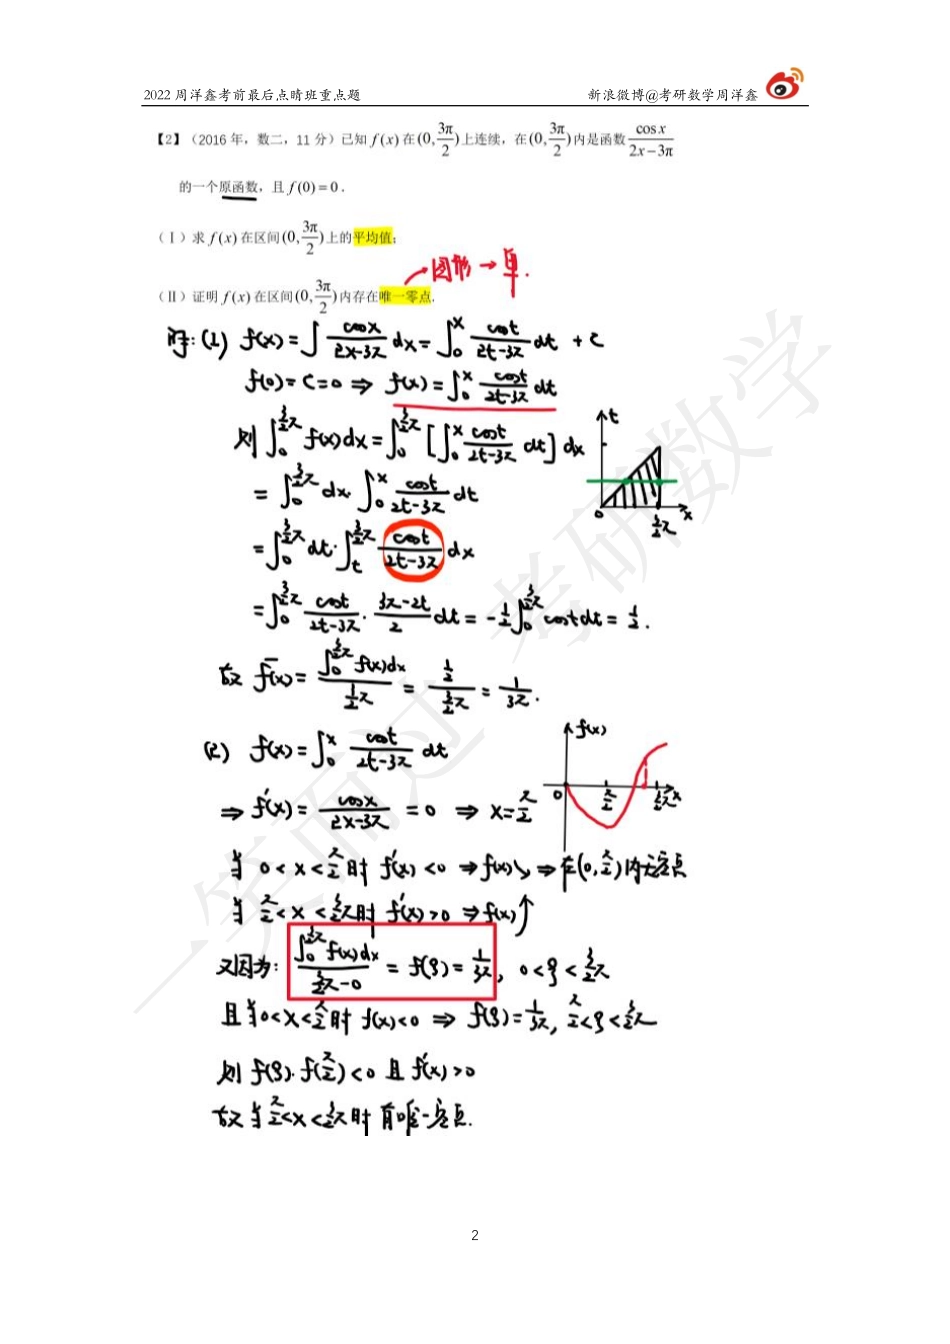 2022 周洋鑫考前最后点睛班重点题 新浪微博@考研数学周洋鑫
【2】（2016 年，数二，11 分）已知 f(x) 在 (0, 3π/2) 上连续，在 (0, 3π/2) 内是函数 cos x/(2x−3π)
的一个原函数，且 f(0)=0．
（Ⅰ）求 f(x) 在区间 (0, 3π/2) 上的平均值；
图形→单.
（Ⅱ）证明 f(x) 在区间 (0, 3π/2) 内存在唯一零点.
解: (1) f(x)=∫ cosx/(2x-3π) dx=∫₀ˣ cost/(2t-3π) dt + C
f(0)=C=0 ⇒ f(x)=∫₀ˣ cost/(2t-3π) dt
则 ∫₀^{3/2π} f(x)dx=∫₀^{3/2π} [∫₀ˣ cost/(2t-3π) dt] dx
t
= ∫₀^{3/2π} dx·∫₀ˣ cost/(2t-3π) dt
0 3/2π x
=∫₀^{3/2π} dt·∫ₜ^{3/2π} cost/(2t-3π) dx
=∫₀^{3/2π} cost/(2t-3π) · (3π-2t)/2 dt = -1/2 ∫₀^{3/2π} cost dt = 1/2.
故 f̄(x)= ∫₀^{3/2π} f(x)dx / (1/2π) = (1/2)/(3/2π) = 1/3π.
(2) f(x)=∫₀ˣ cost/(2t-3π) dt
f(x)
⇒ f′(x)= cosx/(2x-3π) =0 ⇒ x=π/2
0 π/2 3/2π x
当 0<x<π/2 时 f′(x)<0 ⇒f(x)↘⇒在(0,π/2)内无零点
当 π/2<x<3/2π时 f′(x)>0 ⇒f(x)↑
又因为: ∫₀^{3/2π} f(x)dx / (3/2π-0) = f(ξ)= 1/3π, 0<ξ<3/2π
且当0<x<π/2时 f(x)<0 ⇒ f(ξ)=1/3π, π/2<ξ<3/2π
则 f(ξ)·f(π/2)<0 且 f′(x)>0
故当π/2<x<3/2π时 有唯一零点.
一笑而过 考研数学
2